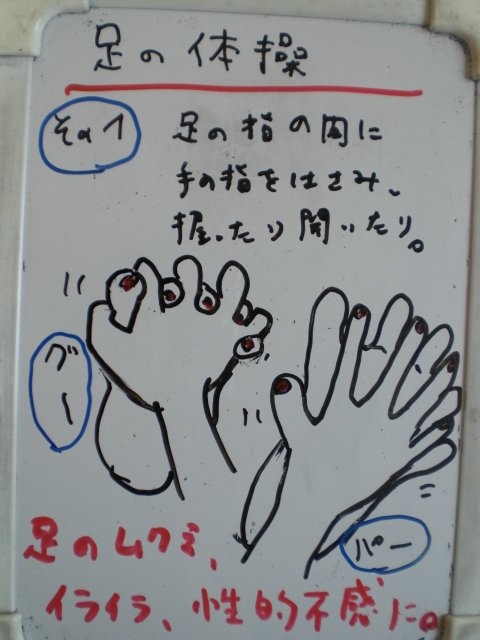 足の体操
その1
足の指の間に
手の指をはさみ、
握ったり開いたり。
グー
パー
足のムクミ、
イライラ、性的不感に。